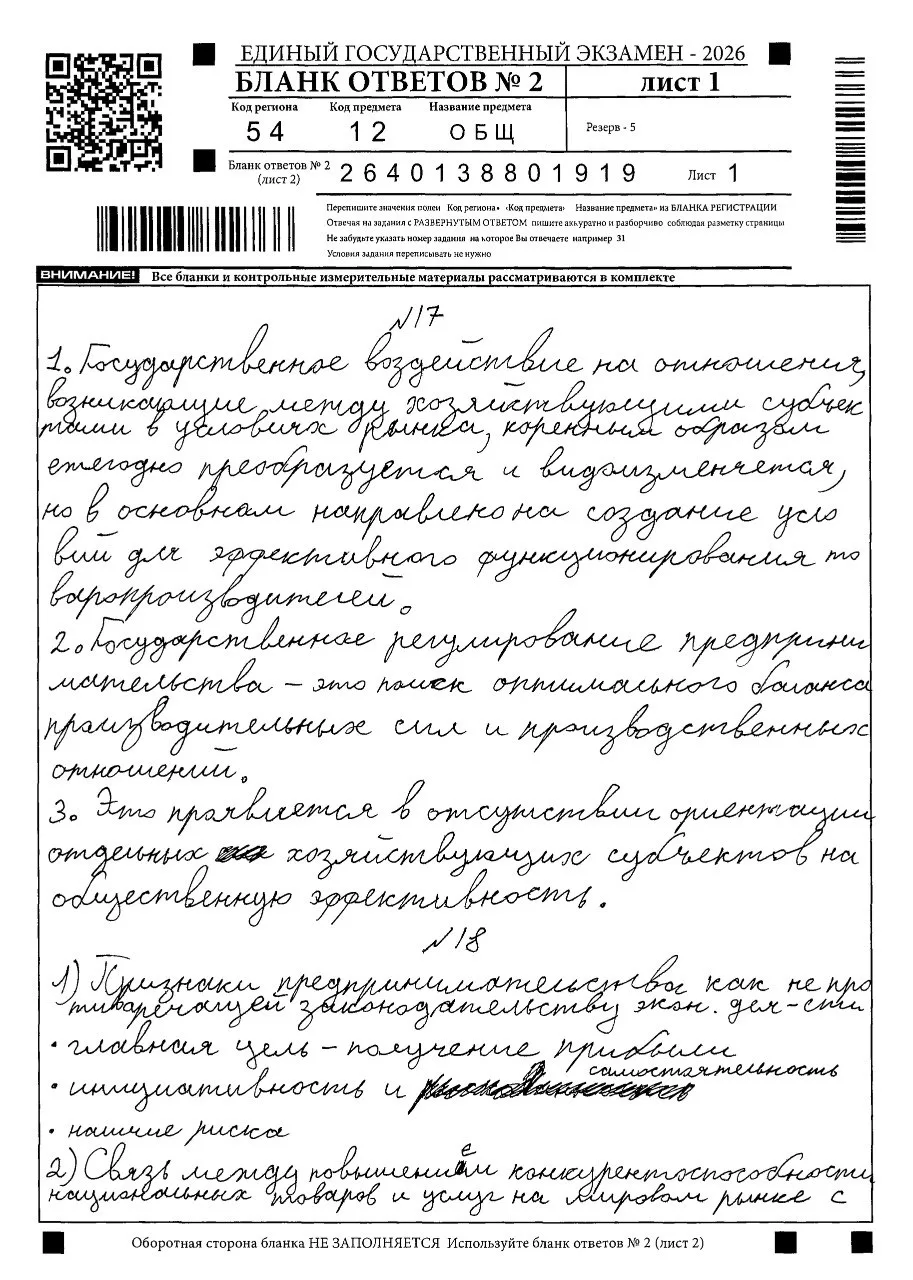 ЕДИНЫЙ ГОСУДАРСТВЕННЫЙ ЭКЗАМЕН - 2026
БЛАНК ОТВЕТОВ № 2 лист 1
Код региона Код предмета Название предмета
54 12 ОБЩ Резерв - 5
Бланк ответов № 2 (лист 2) 2640138801919 Лист 1
Перепишите значения полеи Код региона» ‹Код предмета› Название предмета» из БЛАНКА РЕГИСТРАЦИИ
Отвечая на задания с РАЗВЕРНУТЫМ ОТВЕТОМ пишите аккуратно и разборчиво соблюдая разметку страницы
Не забудьте указать номер задания на которое Вы отвечаете например 31
Условия задания переписывать не нужно
ВНИМАНИЕ! Все бланки и контрольные измерительные материалы рассматриваются в комплекте
№17
1. Государственное воздействие на отношения,
возникающие между хозяйствующими субъек
тами в условиях рынка, коренным образом
ежегодно преобразуется и видоизменяется,
но в основном направлено на создание усло
вий для эффективного функционирования то
варопроизводителей.
2. Государственное регулирование предприни
мательства – это поиск оптимального баланса
производительных сил и производственных
отношений.
3. Это проявляется в отсутствии ориентации
отдельных хозяйствующих субъектов на
общественную эффективность.
№18
1) Признаки предпринимательства как не про
тиворечащей законодательству экон. дея-сти
• главная цель – получение прибыли
• инициативность и самостоятельность
• наличие риска
2) Связь между повышением конкурентоспособности
национальных товаров и услуг на мировом рынке с
Оборотная сторона бланка НЕ ЗАПОЛНЯЕТСЯ Используйте бланк ответов № 2 (лист 2)